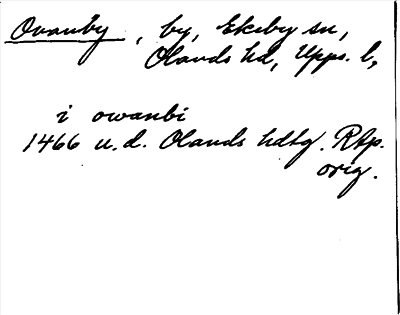 Ovanby, by, Ekeby sn,
Olands hd, Upps. l,
i owanbi
1466 u.d. Olands hdtg. RAp.
orig.